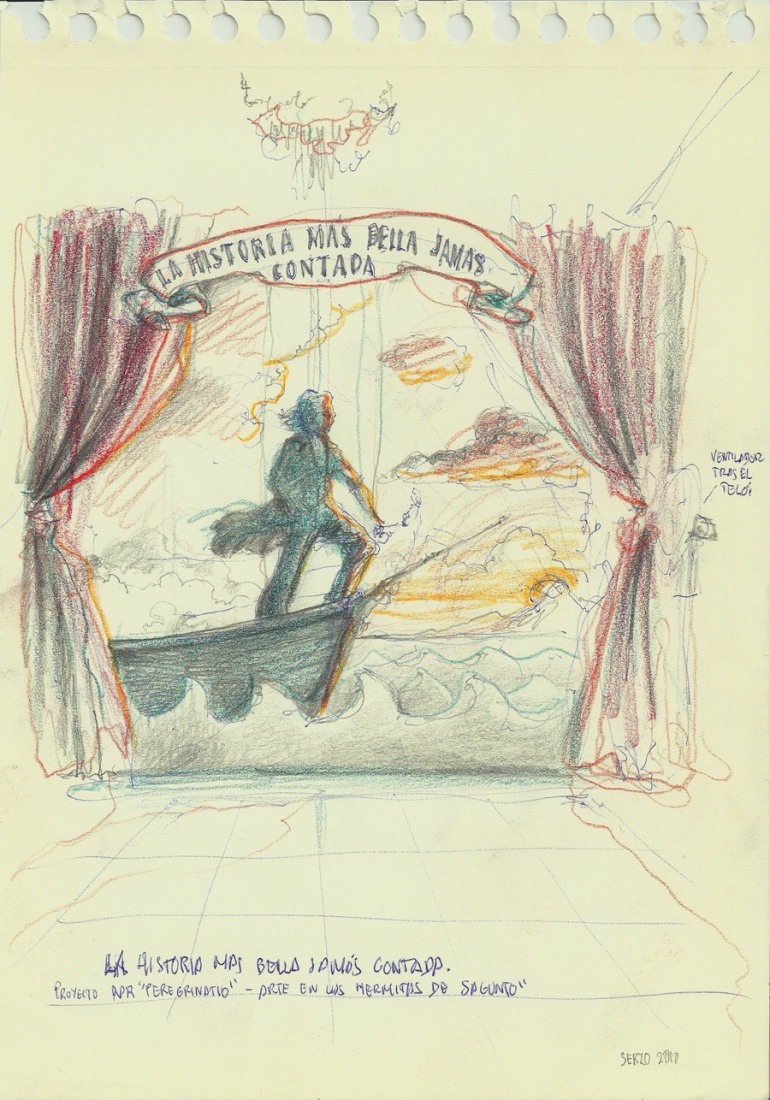 LA HISTORIA MÁS BELLA JAMAS
CONTADA
VENTILADOR
TRAS EL
TELÓN
LA HISTORIA MAS BELLA JAMÁS CONTADA.
PROYECTO PARA "PEREGRINATIO" - ARTE EN LAS HERMITAS DE SAGUNTO"
SERZO 2010